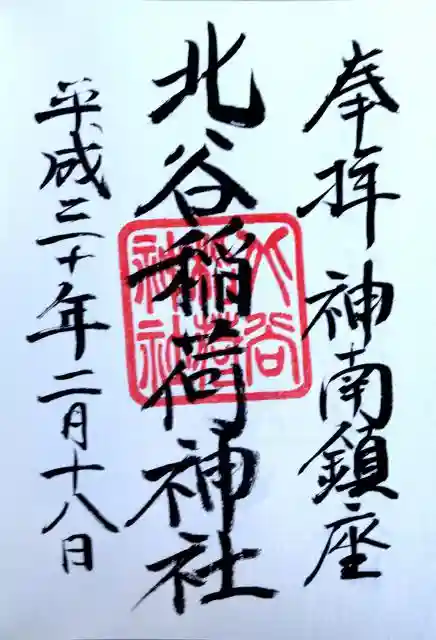 奉拝 神南鎮座
北谷稲荷神社
北谷稲荷神社
平成三十年二月十八日